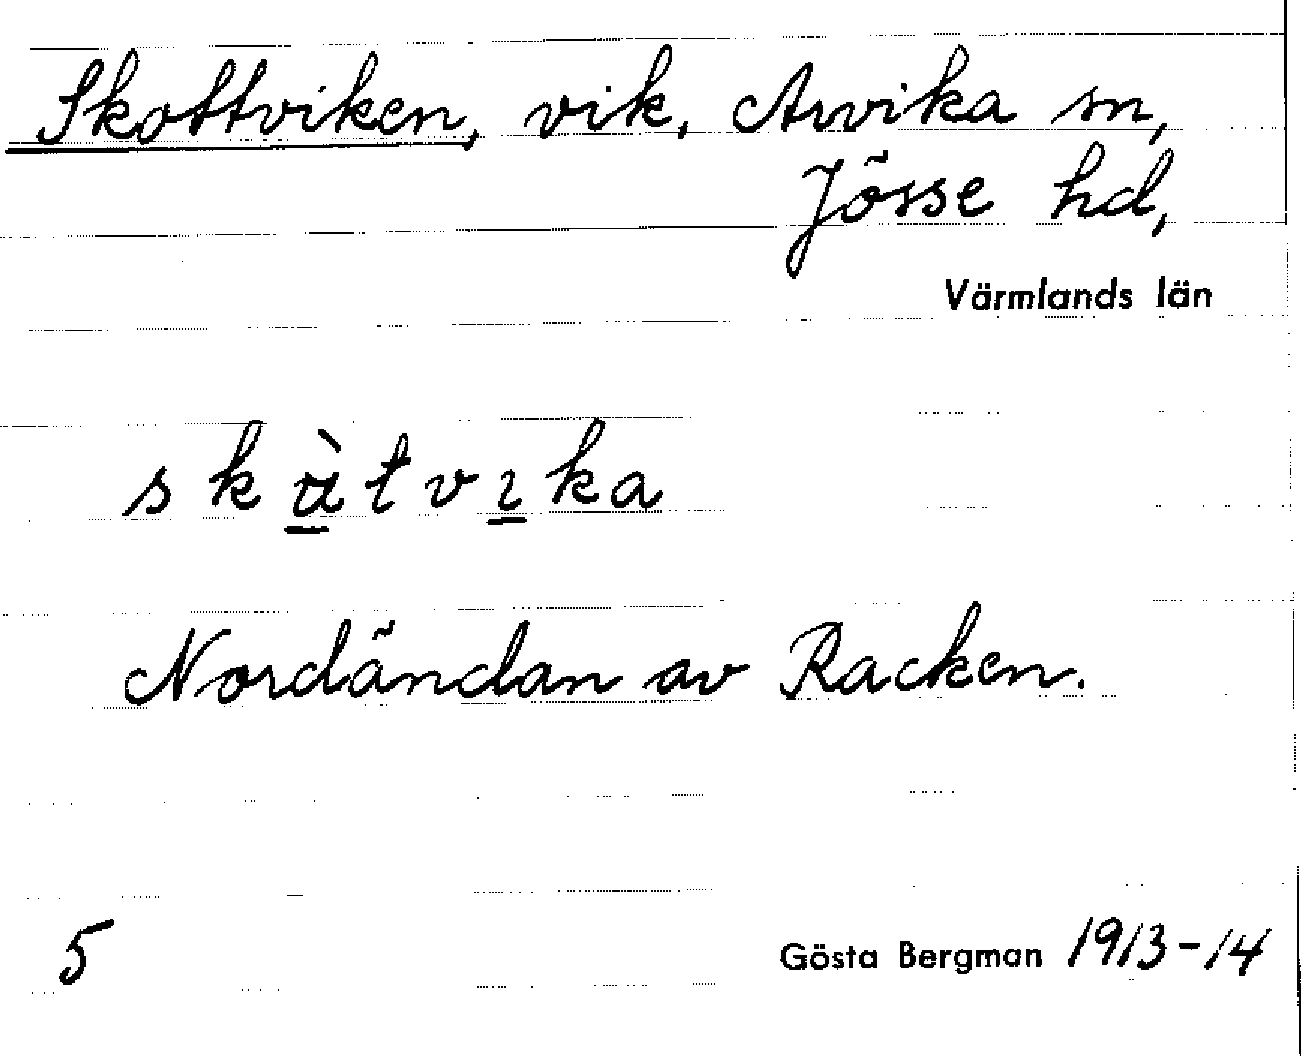 Skottviken, vik, Arvika sn,
Jösse hd,
Värmlands län
skàtvıka
Nordändan av Racken.
5 Gösta Bergman 1913-14